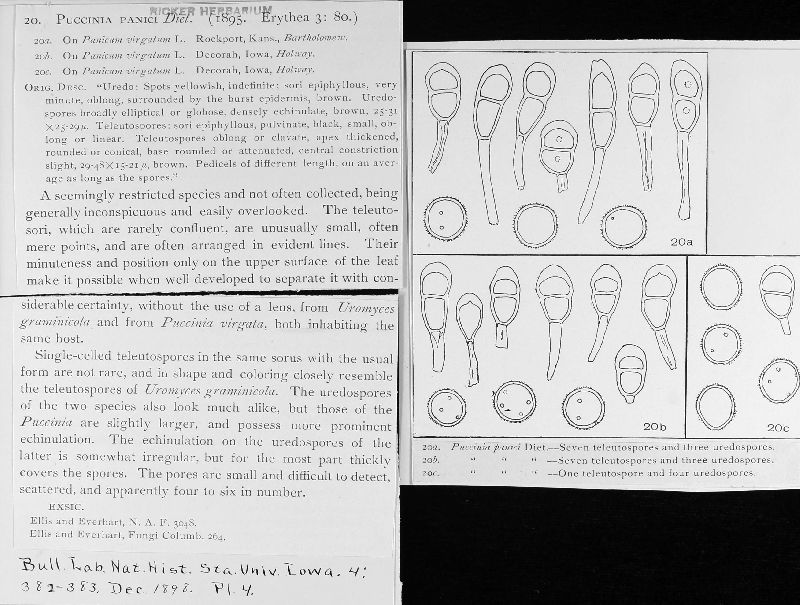 RICKER HERBARIUM
20. PUCCINIA PANICI Diet. (1895. Erythea 3: 80.)
20a. On Panicum virgatum L. Rockport, Kans., Bartholomew.
20b. On Panicum virgatum L. Decorah, Iowa, Holway.
20c. On Panicum virgatum L. Decorah, Iowa, Holway.
ORIG. DESC. "Uredo: Spots yellowish, indefinite: sori epiphyllous, very
minute, oblong, surrounded by the burst epidermis, brown. Uredo-
spores broadly elliptical or globose, densely echinulate, brown, 25-31
×25-29µ. Teleutospores: sori epiphyllous, pulvinate, black, small, ob-
long or linear. Teleutospores oblong or clavate, apex thickened,
rounded or conical, base rounded or attenuated, central constriction
slight, 29-48×15-21µ, brown. Pedicels of different length, on an aver-
age as long as the spores."
A seemingly restricted species and not often collected, being
generally inconspicuous and easily overlooked. The teleuto-
sori, which are rarely confluent, are unusually small, often
mere points, and are often arranged in evident lines. Their
minuteness and position only on the upper surface of the leaf
make it possible when well developed to separate it with con-
siderable certainty, without the use of a lens, from Uromyces
graminicola and from Puccinia virgata, both inhabiting the
same host.
Single-celled teleutospores in the same sorus with the usual
form are not rare, and in shape and coloring closely resemble
the teleutospores of Uromyces graminicola. The uredospores
of the two species also look much alike, but those of the
Puccinia are slightly larger, and possess more prominent
echinulation. The echinulation on the uredospores of the
latter is somewhat irregular, but for the most part thickly
covers the spores. The pores are small and difficult to detect,
scattered, and apparently four to six in number.
EXSIC.
Ellis and Everhart, N. A. F. 3048.
Ellis and Everhart, Fungi Columb. 264.
Bull. Lab. Nat. Hist. Sta. Univ. Iowa. 4:
382-383, Dec. 1898. Pl. 4.
20a
20b
20c
20a. Puccinia panici Diet.—Seven teleutospores and three uredospores.
20b. " " " —Seven teleutospores and three uredospores.
20c. " " " —One teleutospore and four uredospores.